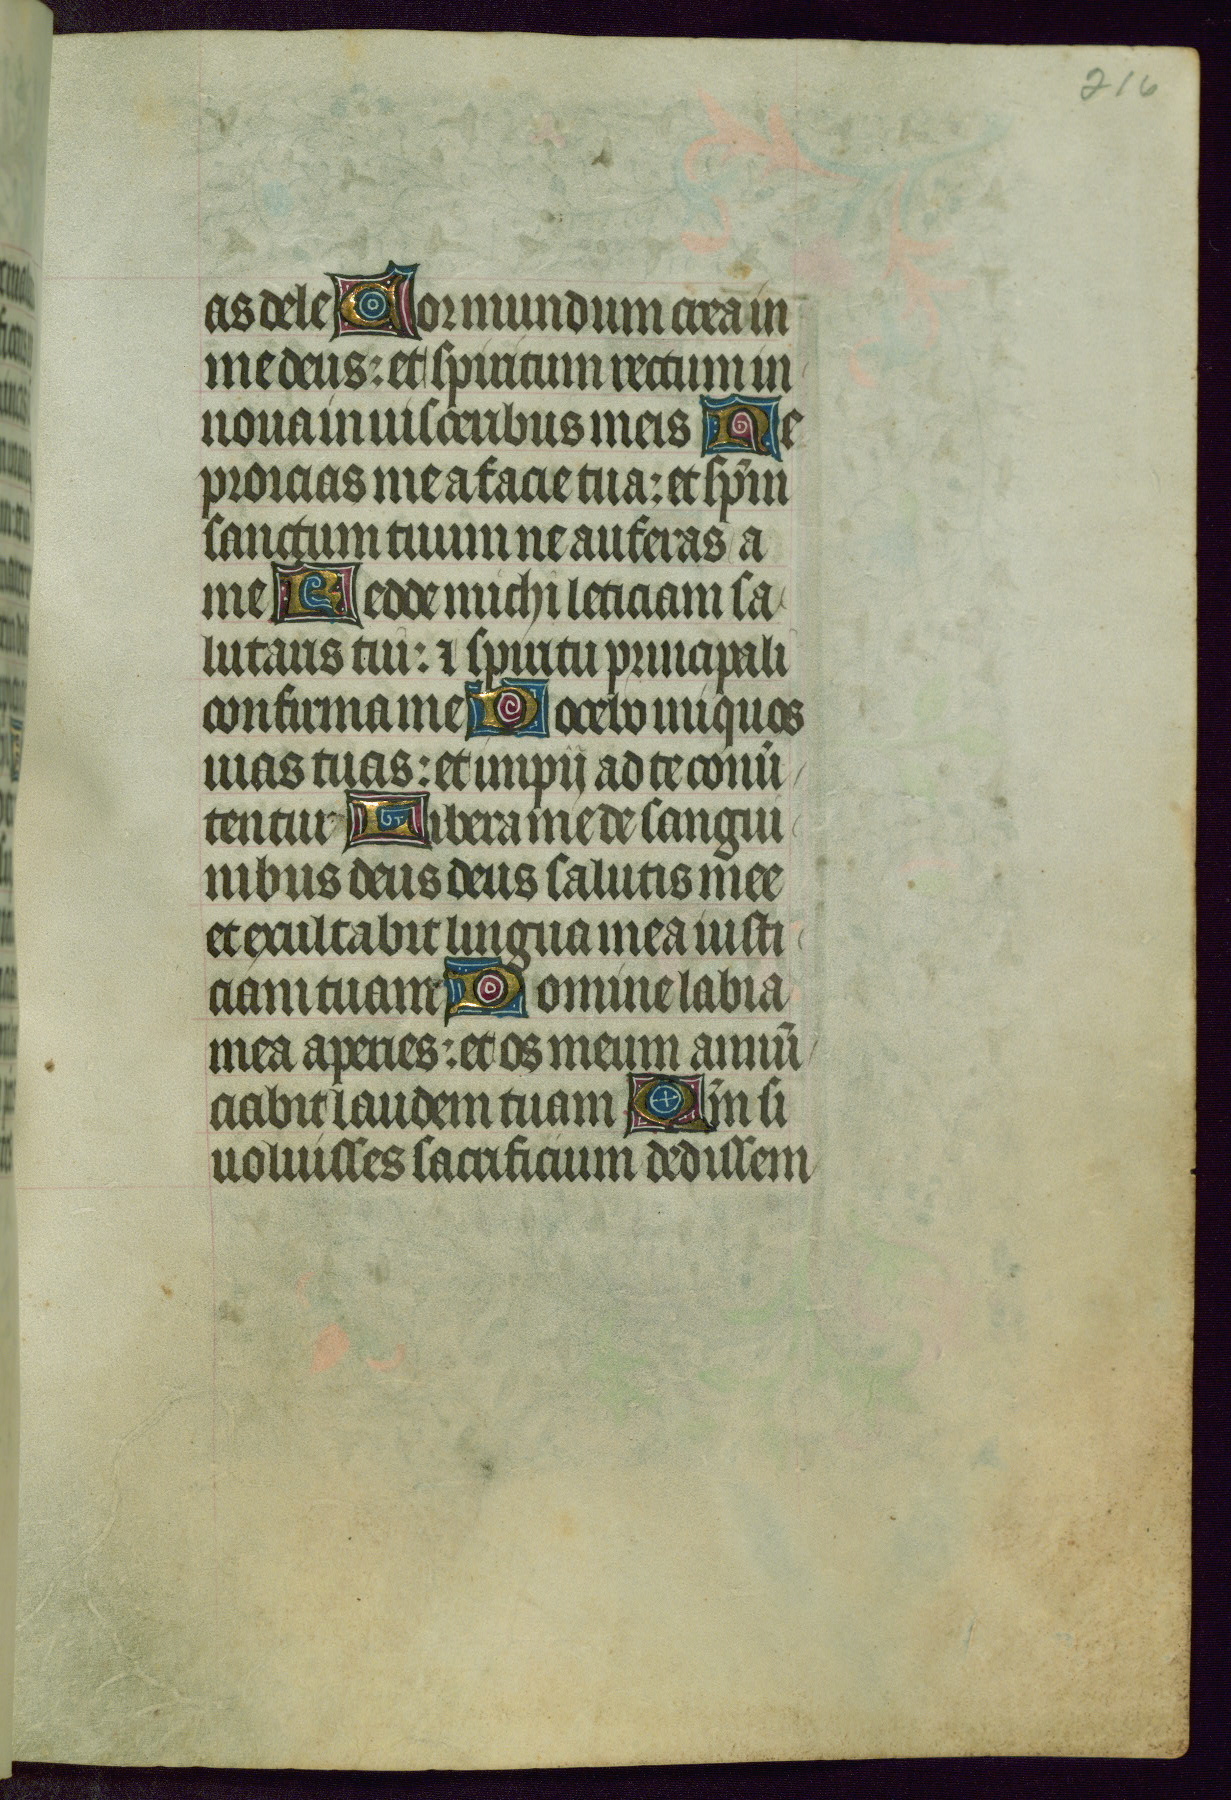 216
as dele Cor mundum crea in
me deus: et spiritum rectum in
noua in uisceribus meis Ne
proicias me a facie tua: et sp̄m
sanctum tuum ne auferas a
me Redde michi leticiam sa
lutaris tui: ⁊ spiritu principali
confirma me Docebo iniquos
uias tuas: et impij ad te conū
tentur Libera me de sangui
nibus deus deus salutis mee
et exultabit lingua mea iusti
ciam tuam Domine labia
mea aperies: et os meum annū
ciabit laudem tuam Qm̄ si
uoluisses sacrificium dedissem